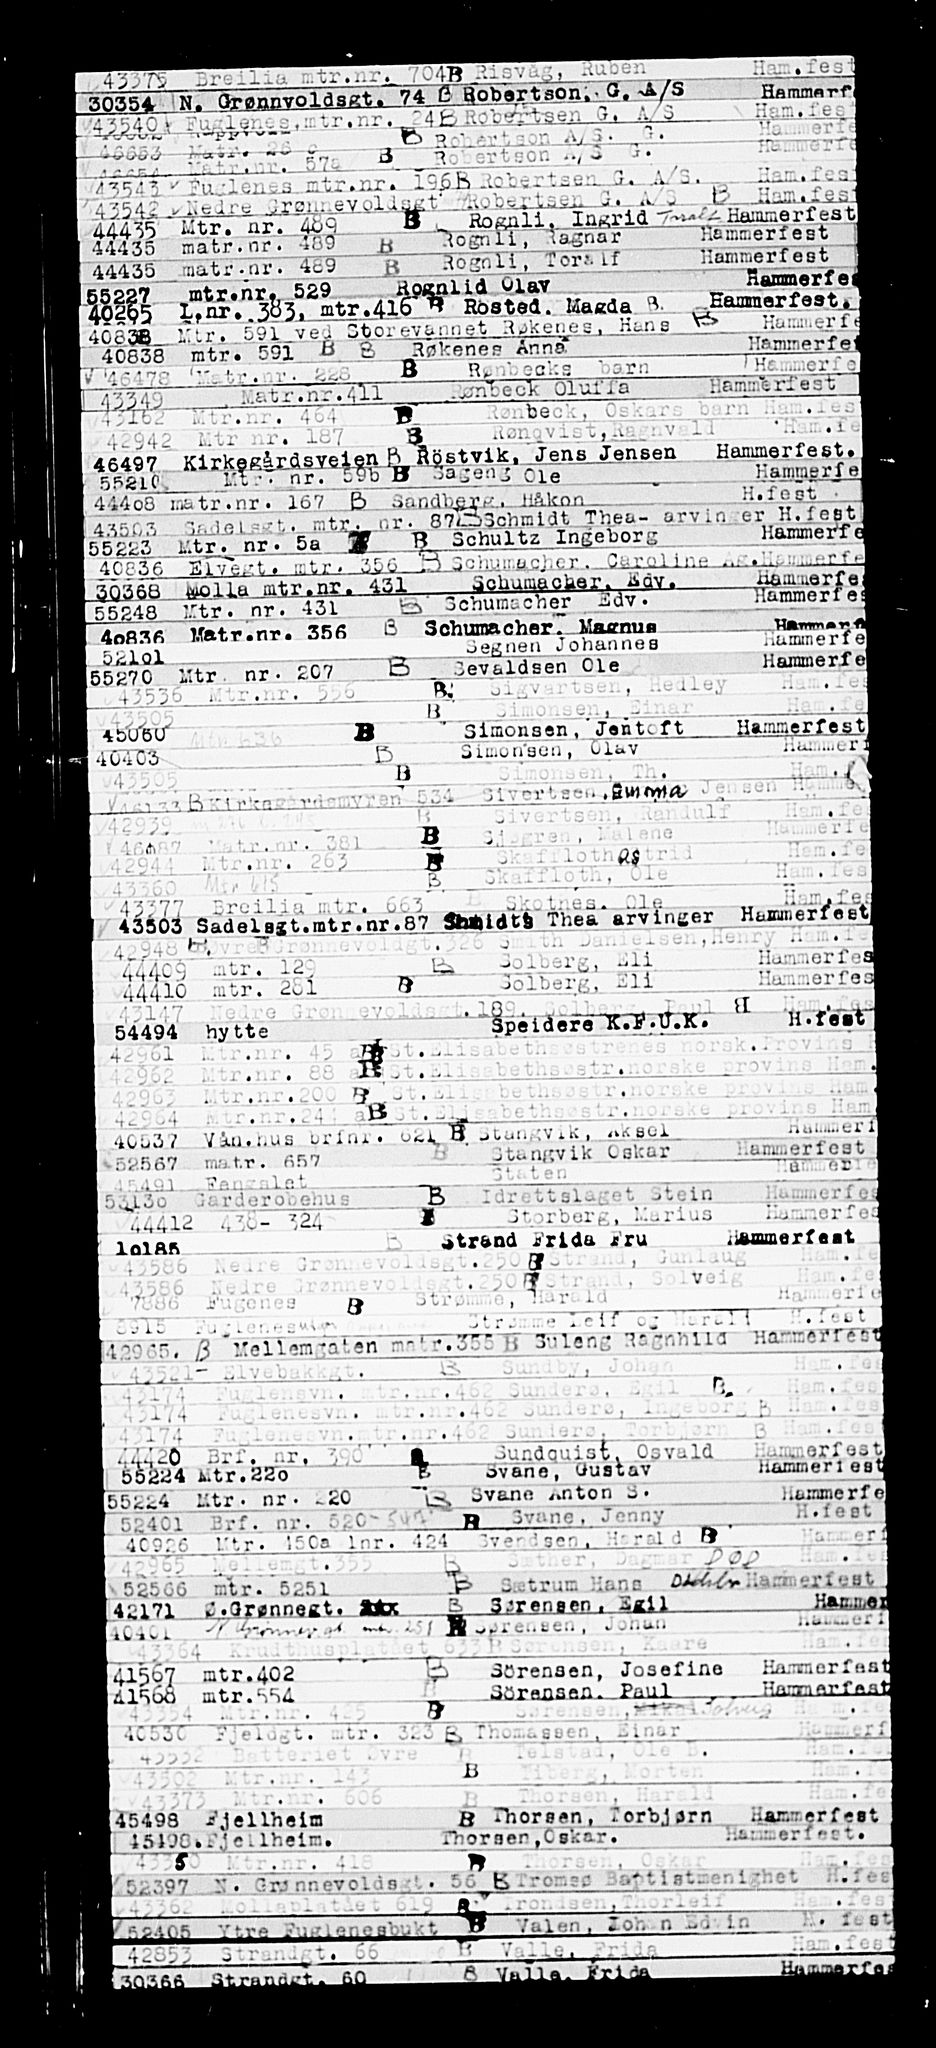 43375 Breilia mtr.nr. 704 B Risvåg, Ruben Ham.fest
30354 N. Grønnvoldsgt. 74 B Robertson, G. A/S Hammerf
43540 Fuglenes, mtr.nr. 24 B Robertsen G. A/S Ham.fes
46653 Matr. 26 B Robertson A/S. G. Hammerfe
Matr.nr. 57a B Robertson A/S G. Hammerfe
43543 Fuglenes mtr.nr. 196 B Robertsen G. A/S. Ham.fes
43542 Nedre Grønnevoldsgt Robertsen G. A/S B Ham.fes
44435 Mtr. nr. 489 B Rognli, Ingrid Toralf Hammerfest
44435 matr.nr. 489 B Rognli, Ragnar Hammerfest
44435 matr.nr. 489 B Rognli, Toralf Hammerfest
55227 mtr.nr. 529 Rognlid Olav Hammerfes
40265 L.nr. 383, mtr.416 B Rosted. Magda B. Hammerfest.
40838 Mtr. 591 ved Storevannet Røkenes, Hans B Hammerfe
40838 mtr. 591 B B Røkenes Anna Hammerfes
46478 Matr.nr. 228 B Rønbecks barn Hammerfe
43349 Matr.nr.411 Rønbeck Oluffa Hammerfest
43162 Mtr.nr. 464 B Rønbeck, Oskars barn Ham.fes
42942 Mtr nr. 187 B Rønqvist, Ragnvald Ham.fe
46497 Kirkegårdsveien B Röstvik, Jens Jensen Hammerfest.
55210 Mtr. nr. 59b B Sageng Ole Hammerfe
44408 matr.nr. 167 B Sandberg, Håkon H.fest
43503 Sadelsgt. mtr. nr. 87 B Schmidt Thea- arvinger H.fest
55223 Mtr. nr. 5a B Schultz Ingeborg Hammerfe
40836 Elvegt. mtr. 356 B Schumacher. Caroline Ag. Hammerfe
30368 Molla mtr.nr. 431 Schumacher, Edv. Hammerfes
55248 Mtr. nr. 431 B Schumacher Edv. Hammerfes
40836 Matr.nr. 356 B Schumacher. Magnus Hammerf
52101 Segnen Johannes Hammerfe
55270 Mtr. nr. 207 B Sevaldsen Ole Hammerfe
43536 Mtr.nr. 556 B. Sigvartsen, Hedley Ham.fes
43505 B Simonsen, Einar Ham.fe
45060 B Simonsen, Jentoft Hammerfest
40403 B Simonsen, Olav Hammerf
43505 B Simonsen, Th. Ham.
46133 B Kirkegårdsmyren 534 Sivertsen, Emma Jensen Hamme
42939 B Sivertsen, Randulf Ham.fe
46087 Matr.nr. 381 B Sjøgren, Malene Hammerfe
42944 Mtr.nr. 263 B Skaffloth Astrid Ham.fe
43360 Mtr 615 B Skaffloth, Ole Ham.fes
43377 Breilia mtr. 663 B Skotnes. Ole Ham.fes
43503 Sadelsgt.mtr.nr.87 Shmidts Thea arvinger Hammerfest
42948 B. Øvre Grønnevoldgt. 326 Smith Danielsen, Henry Ham.fe
44409 mtr. 129 B Solberg, Eli Hammerfes
44410 mtr. 281 B Solberg, Eli Hammerfes
43147 Nedre Grønnevoldsgt. 189. Solberg, Paul B Ham.fes
54494 hytte Speidere K.F.U.K. H.fest
42961 Mtr.nr. 45 a B St.Elisabethsøstrenes norsk.Provins
42962 Mtr.nr. 88 a B St.Elisabethsøstr.norske provin Ham.
42963 Mtr.nr.200 B St.Elisabethsøstr.norske provin Ham
42964 Mtr.nr.244 a B St.Elisabethsøstr.norske provin Ham
40537 Vån.hus brfnr. 621 B Stangvik, Aksel Hammerf
52567 matr. 657 B Stangvik Oskar Hammerfest
45491 Fengslet Staten Hammerfe
53130 Garderobehus B Idrettslaget Stein Hammerfes
44412 438- 324 Storberg, Marius Hammerfes
10185 B Strand Frida Fru Hammerfest
43586 Nedre Grønnevoldsgt.250 B Strand, Gunlaug Ham.fe
43586 Nedre Grønnevoldsgt.250 B Strand, Solveig Ham.fe
7886 Fugenes B Strømme, Harald Hammerfe
8915 Fuglenes Strømme Leif og Harald H.fest
42965. B Mellemgaten matr.355 B Suleng Ragnhild Hammerfest
43521- Elvebakkgt. B Sundby, Johan Ham.fes
43174 Fuglenesvn. mtr.nr.462 Sunderø, Egil B. Ham.fes
43174 Fuglenesvn. mtr.nr.462 Sunderø, Ingeborg B Ham.fes
43174 Fuglenesvn.mtr.nr.462 Sunderø, Torbjørn B Ham.fes
44420 Brf. nr. 390 Sundquist, Osvald Hammerfest
55224 Mtr.220 B Svane, Gustav Hammerfest
55224 Mtr. nr. 220 B Svane Anton S. Hammerfe
52401 Brf. nr. 520- B Svane, Jenny H.fest
40926 Mtr. 150a lnr. 424 Svendsen, Harald B Hammerf
42965 Mellemgt.355 B Sæther, Dagmar DØD Ham.fes
52566 mtr. 5251 B Sætrum Hans Hammerfest
42171 Ø.Grønnegt. B Sørensen, Egil Hammer
40401 mtr. 251 B Sørensen, Johan Hammerf
43364 Krudthusplatået 633 B Sørensen, Kaare Ham.fe
41567 mtr.402 B Sörensen, Josefine Hammerfest
41568 mtr.554 B Sörensen. Paul Hammerfest
Mtr.nr. 425 B Sørensen, Solveig Ham.fe
40530 Fjeldgt. mtr. 323 B Thomassen, Einar Hammerf
Batteriet Øvre B Telstad, Ole B. Ham.fe
43502 Mtr.nr. 143 B Tiberg, Morten Ham.fe
43373 Mtr.nr. 606 B Thorsen, Harald Ham.fe
45498 Fjellheim B Thorsen, Torbjørn Hammerfest
45498.Fjellheim. Thorsen, Oskar. Hammerfest.
43350 Mtr.nr. 418 B Thorsen, Oskar Ham.fes
52397 N. Grønnevoldsgt. 56 B Tromsø Baptistmenighet H.fes
43362 Mollaplatået 619 B. Trondsen, Thorleif Ham.fes
52405 Ytre Fuglenesbukt B Valen, Johan Edvin H. fest
42853 Strandgt. 66 B Valle, Frida Ham.fest
30366 Strandgt. 60 B Valle. Frida Hammerfes